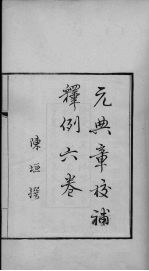 元典章校補
釋例六卷
陳垣撰